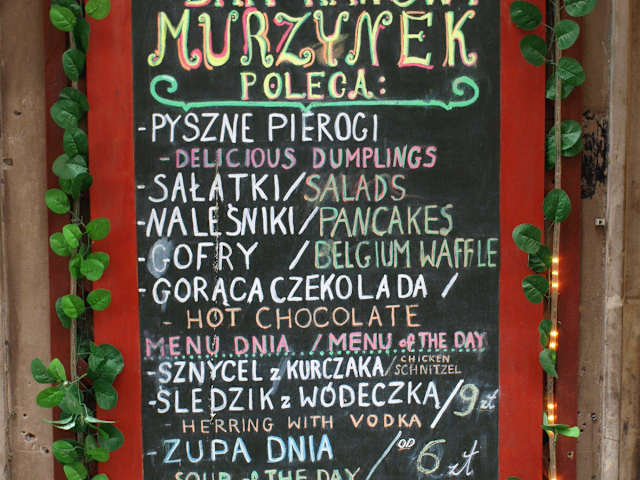 BAR KAWOWY
MURZYNEK
POLECA:
-PYSZNE PIEROGI
- DELICIOUS DUMPLINGS
-SAŁATKI/SALADS
-NALEŚNIKI/PANCAKES
-GOFRY /BELGIUM WAFFLE
-GORĄCA CZEKOLADA /
- HOT CHOCOLATE
MENU DNIA /MENU of THE DAY
-SZNYCEL z KURCZAKA/CHICKEN SCHNITZEL
-ŚLEDZIK z WÓDECZKĄ/9 zł
- HERRING WITH VODKA
-ZUPA DNIA /OD 6 zł
SOUP of THE DAY